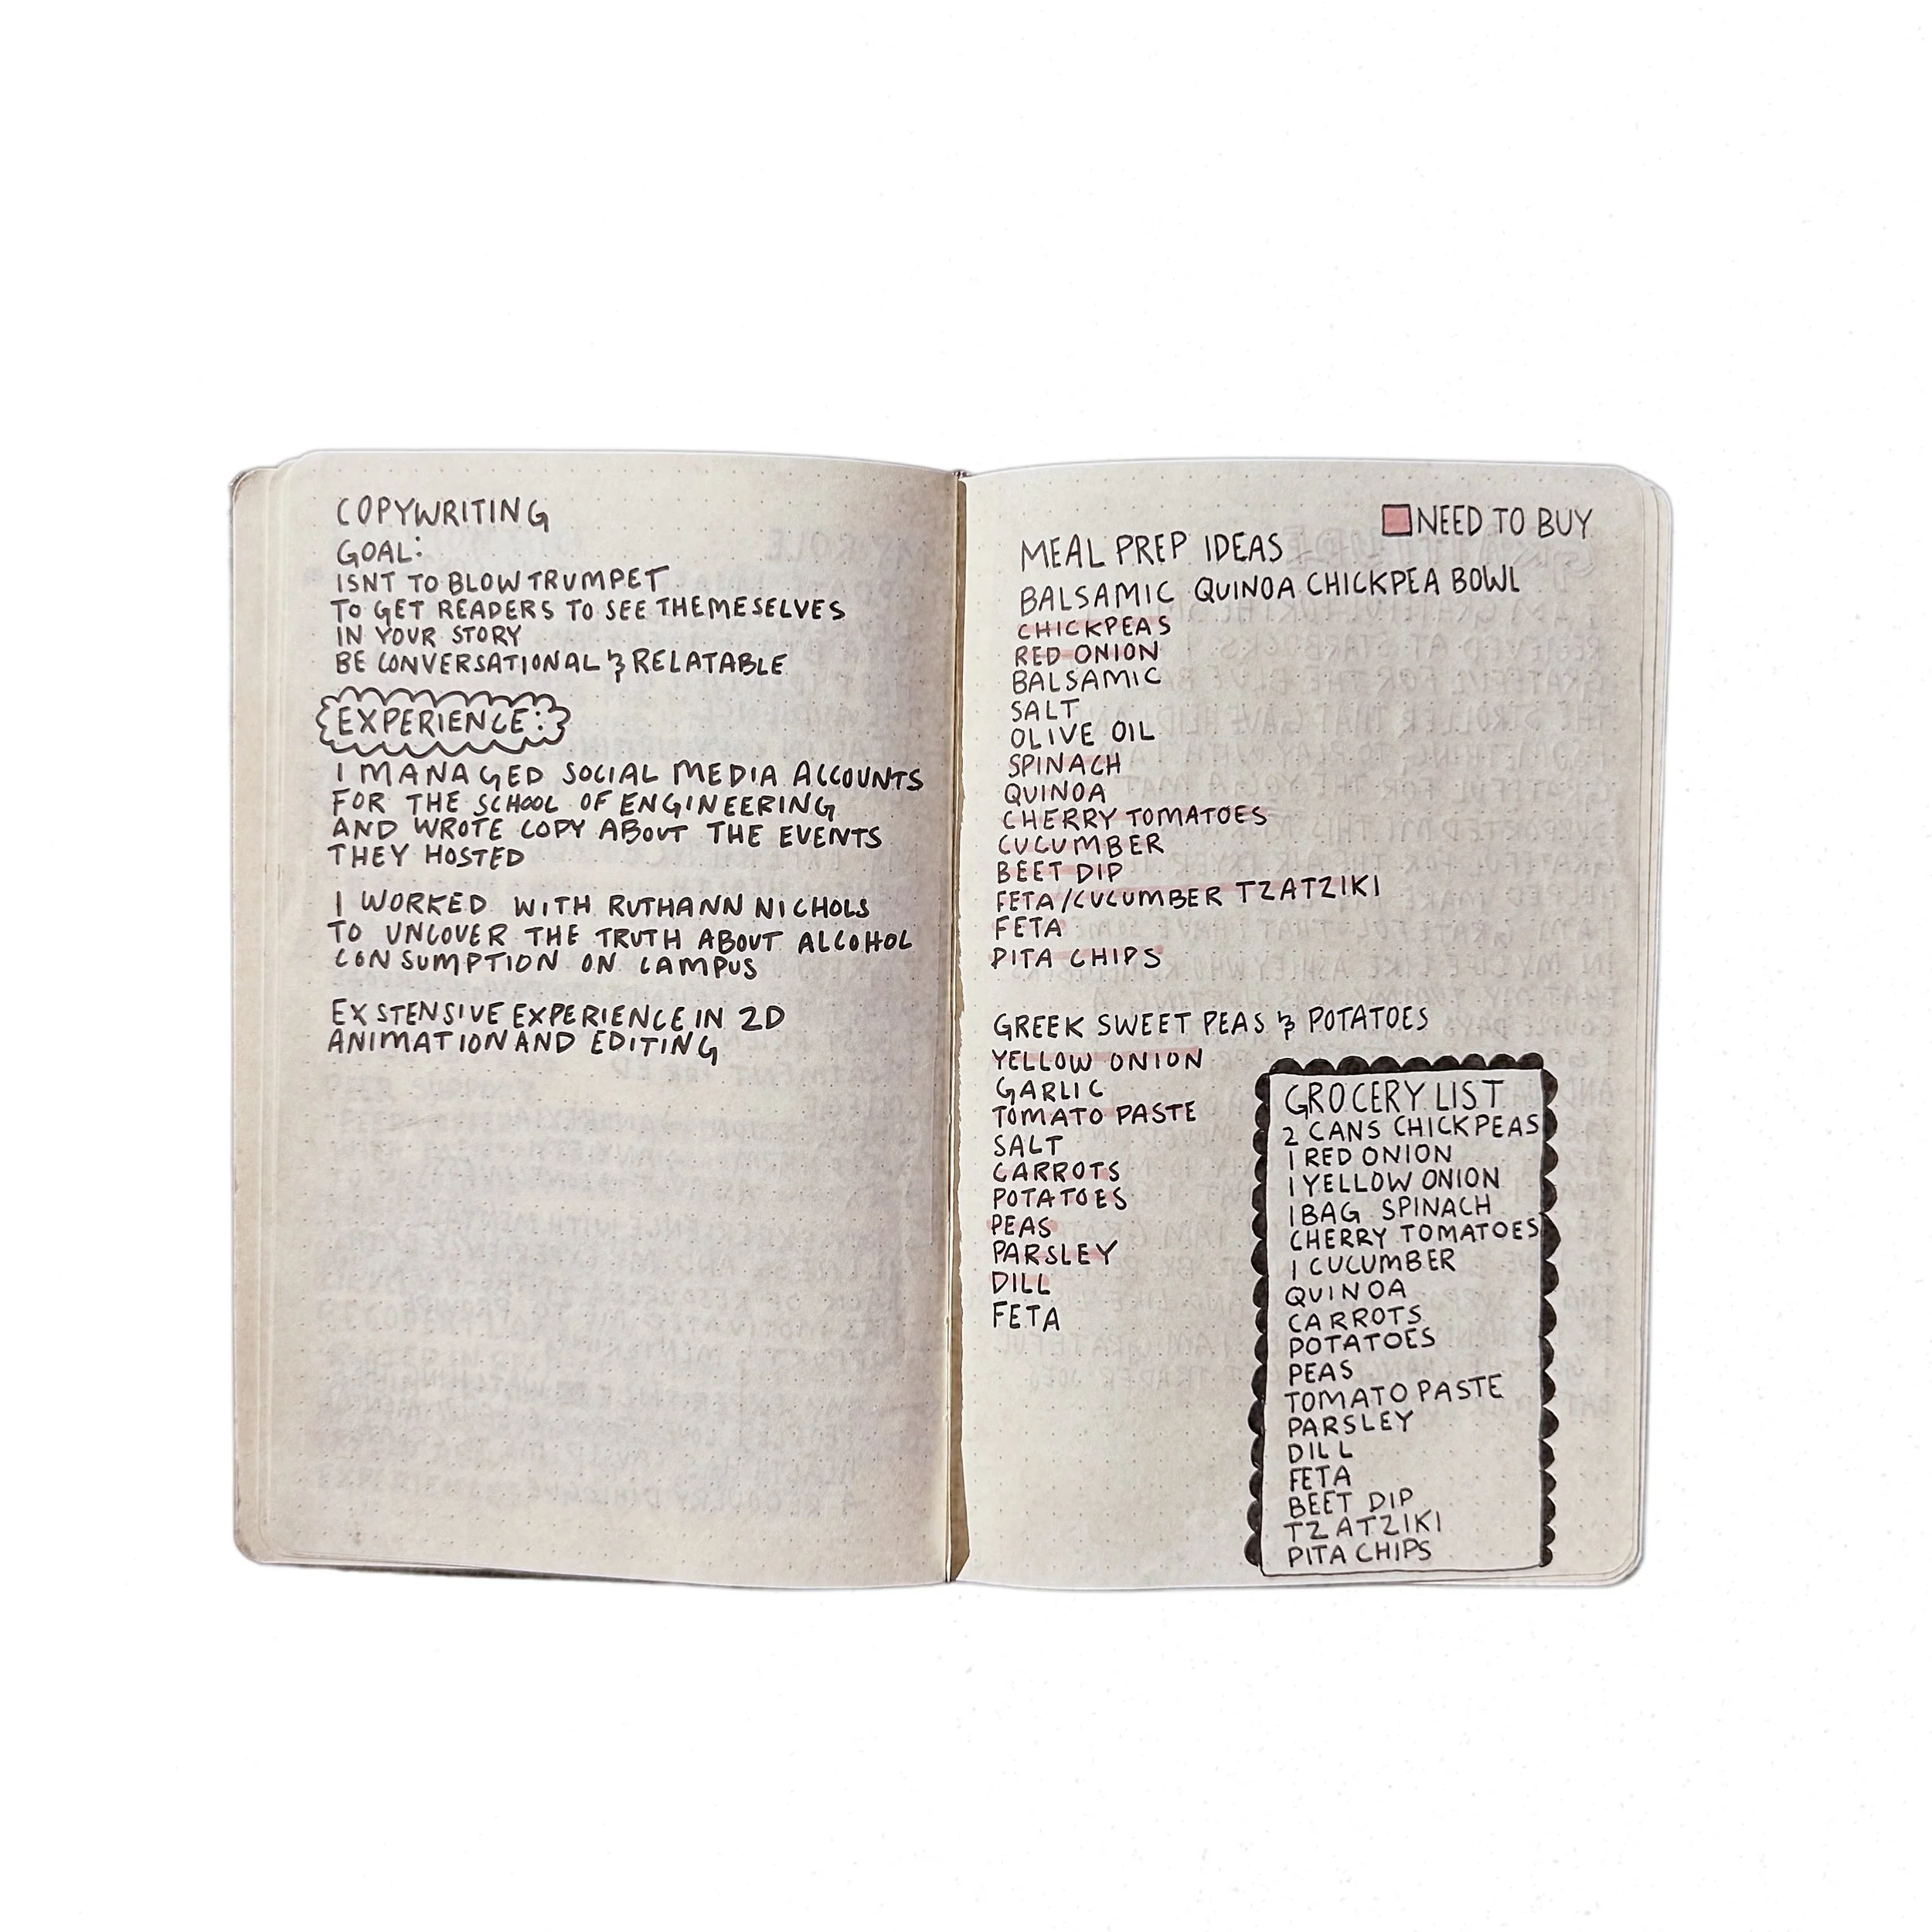 COPYWRITING
GOAL:
ISNT TO BLOW TRUMPET
TO GET READERS TO SEE THEMESELVES
IN YOUR STORY
BE CONVERSATIONAL & RELATABLE
EXPERIENCE:
I MANAGED SOCIAL MEDIA ACCOUNTS
FOR THE SCHOOL OF ENGINEERING
AND WROTE COPY ABOUT THE EVENTS
THEY HOSTED
I WORKED WITH RUTHANN NICHOLS
TO UNCOVER THE TRUTH ABOUT ALCOHOL
CONSUMPTION ON CAMPUS
EXSTENSIVE EXPERIENCE IN 2D
ANIMATION AND EDITING
NEED TO BUY
MEAL PREP IDEAS
BALSAMIC QUINOA CHICKPEA BOWL
CHICKPEAS
RED ONION
BALSAMIC
SALT
OLIVE OIL
SPINACH
QUINOA
CHERRY TOMATOES
CUCUMBER
BEET DIP
FETA/CUCUMBER TZATZIKI
FETA
PITA CHIPS
GREEK SWEET PEAS & POTATOES
YELLOW ONION
GARLIC
TOMATO PASTE
SALT
CARROTS
POTATOES
PEAS
PARSLEY
DILL
FETA
GROCERY LIST
2 CANS CHICKPEAS
1 RED ONION
1 YELLOW ONION
1 BAG SPINACH
CHERRY TOMATOES
1 CUCUMBER
QUINOA
CARROTS
POTATOES
PEAS
TOMATO PASTE
PARSLEY
DILL
FETA
BEET DIP
TZATZIKI
PITA CHIPS